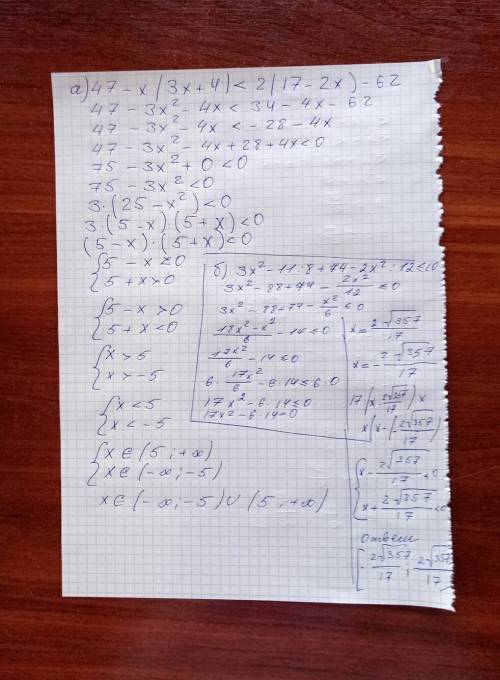 а) 47 - x (3x + 4) < 2(17 - 2x) - 62
47 - 3x² - 4x < 34 - 4x - 62
47 - 3x² - 4x < - 28 - 4x
47 - 3x² - 4x + 28 + 4x < 0
75 - 3x² + 0 < 0
75 - 3x² < 0
3 · (25 - x²) < 0
3 · (5 - x) · (5 + x) < 0
(5 - x) · (5 + x) < 0
{5 - x < 0
5 + x > 0
{5 - x > 0
5 + x < 0
{x > 5
x > - 5
{x < 5
x < - 5
{x ∈ (5 ; +∞)
x ∈ (-∞; -5)
x ∈ (-∞; -5) ∪ (5 ; +∞)
б) 3x² - 11 · 8 + 74 - 2x² : 12 ≤ 0
3x² - 88 + 74 - 2x²/12 ≤ 0
3x² - 88 + 74 - x²/6 ≤ 0
18x² - x²/6 - 14 ≤ 0
17x²/6 - 14 ≤ 0
6 · 17x²/6 - 6 · 14 ≤ 6 · 0
17x² - 6 · 14 ≤ 0
17x² - 6 · 14 = 0
x = 2√357/17
x = - 2√357/17
17 (x - 2√357/17) x
x (x - (- 2√357/17)
{x - 2√357/17 ≤ 0
x + 2√357/17 ≤ 0
Ответ
[- 2√357/17 ; 2√357/17]